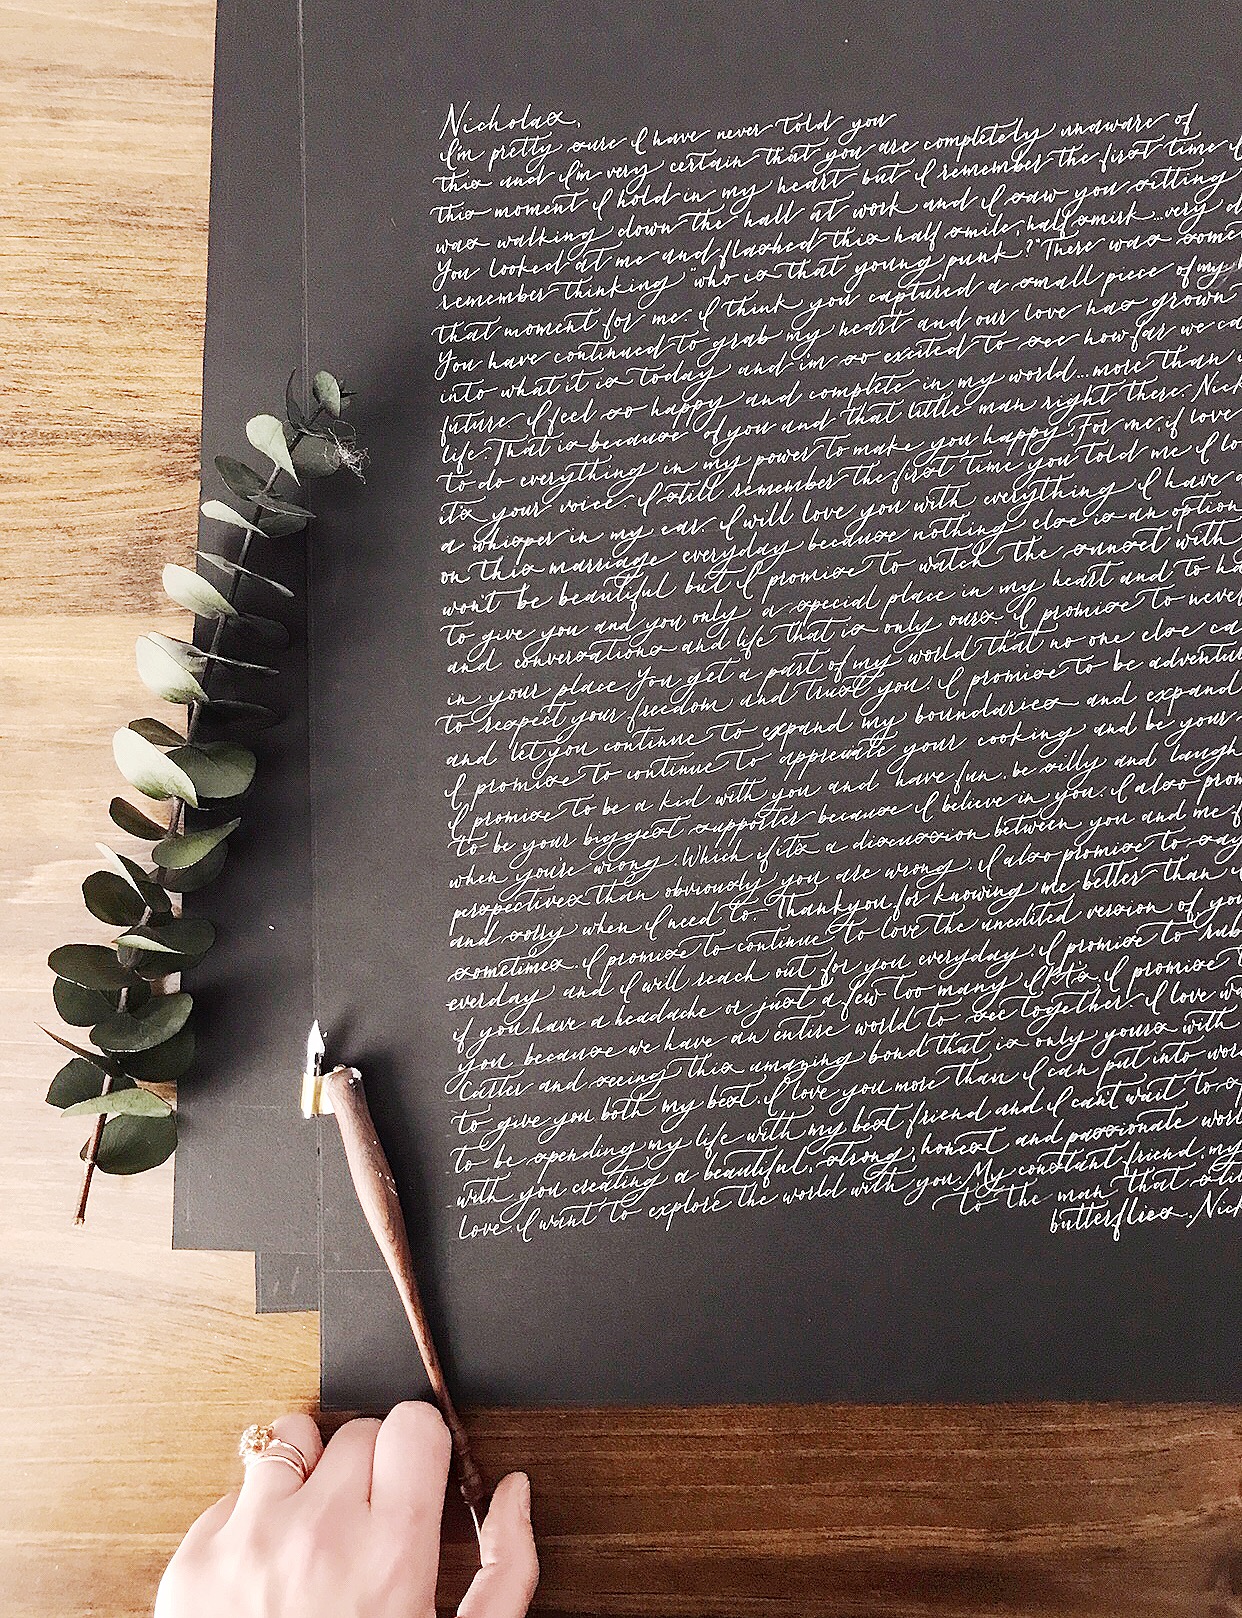 Nicholas,
I'm pretty sure I have never told you
this and I'm very certain that you are completely unaware of
this moment I hold in my heart but I remember the first time I
was walking down the hall at work and I saw you sitting
You looked at me and flashed this half smile, half smirk...very
remember thinking "who is that young punk?" There was
that moment for me. I think you captured a small piece of my
You have continued to grab my heart and our love has grown
into what it is today and i'm so excited to see how far we
future. I feel so happy and complete in my world...more than
life. That is because of you and that little man right there.
to do everything in my power to make you happy. For me, if love
its your voice. I still remember the first time you told me I
a whisper in my ear. I will love you with everything I have
on this marriage everyday because nothing else is an option
won't be beautiful but I promise to watch the sunset with
to give you and you only a special place in my heart and to
and conversations and life that is only ours. I promise to never
in your place. You get a part of my world that no one else
to respect your freedom and trust you. I promise to be
and let you continue to expand my boundaries and expand
I promise to continue to appreciate your cooking and be your
I promise to be a kid with you and have fun, be silly and laugh
to be your biggest supporter because I believe in you. I also
when you're wrong. Which if its a discussion between you and me
perspectives than obviously you are wrong. I also promise to say
and sorry when I need to. Thankyou for knowing me better than
sometimes. I promise to continue to love the unedited version of
everday and I will reach out for you everyday. I promise to rub
if you have a headache or just a few too many IPA's. I promise
you because we have an entire world to see together. I love
Cutler and seeing this amazing bond that is only yours with
to give you both my best. I love you more than I can put into
to be spending my life with my best friend and I can't wait to
with you creating a beautiful, strong, honest and passionate
love. I want to explore the world with you. My constant friend, my
to the man that
butterflies.